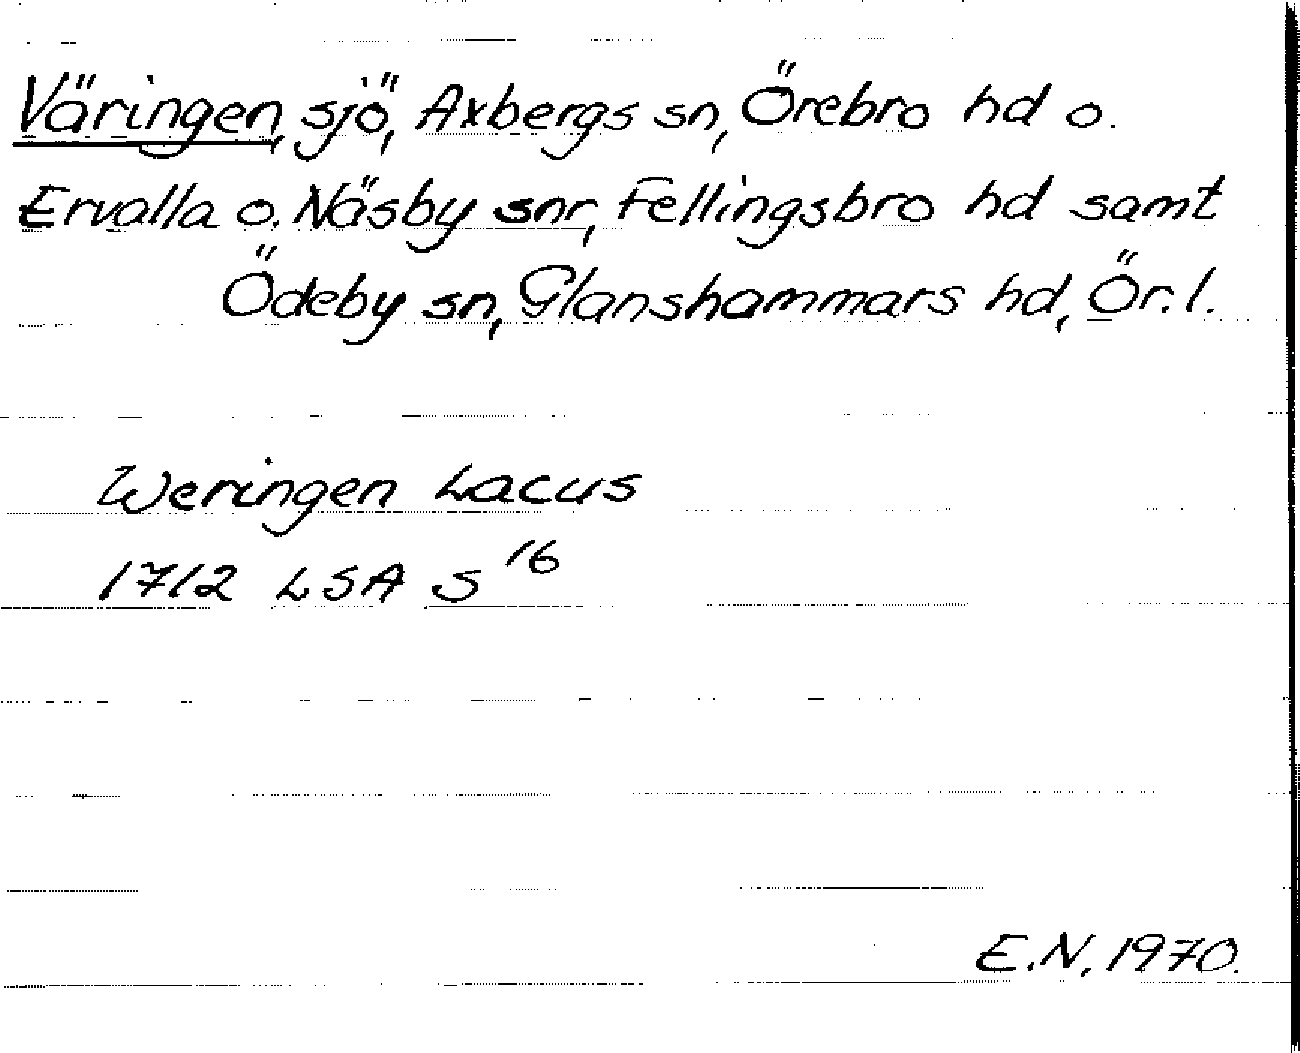 Väringen, sjö, Axbergs sn, Örebro hd o.
Ervalla o. Näsby snr, Fellingsbro hd samt
Ödeby sn, Glanshammars hd, Ör. l.
Weringen Lacus
1712 LSA S 16
E.N. 1970.